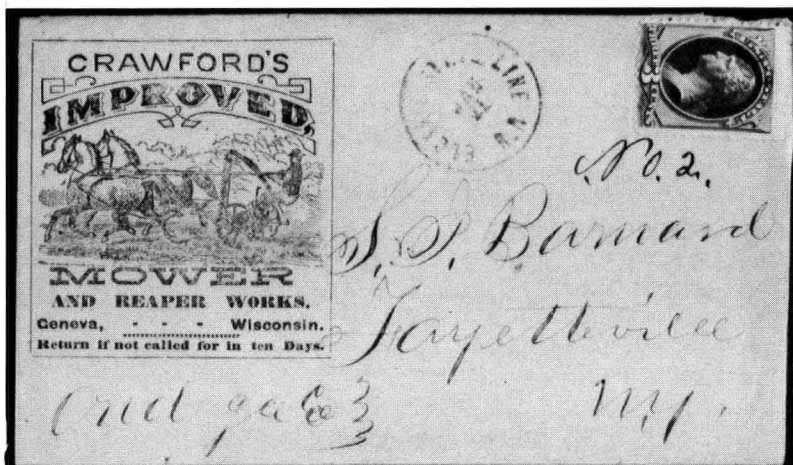 CRAWFORD'S
IMPROVED,
MOWER
AND REAPER WORKS.
Geneva, - - - Wisconsin.
Return if not called for in ten Days.
LINE
No. 2.
S. S. Barnard
Fayetteville
N.Y.